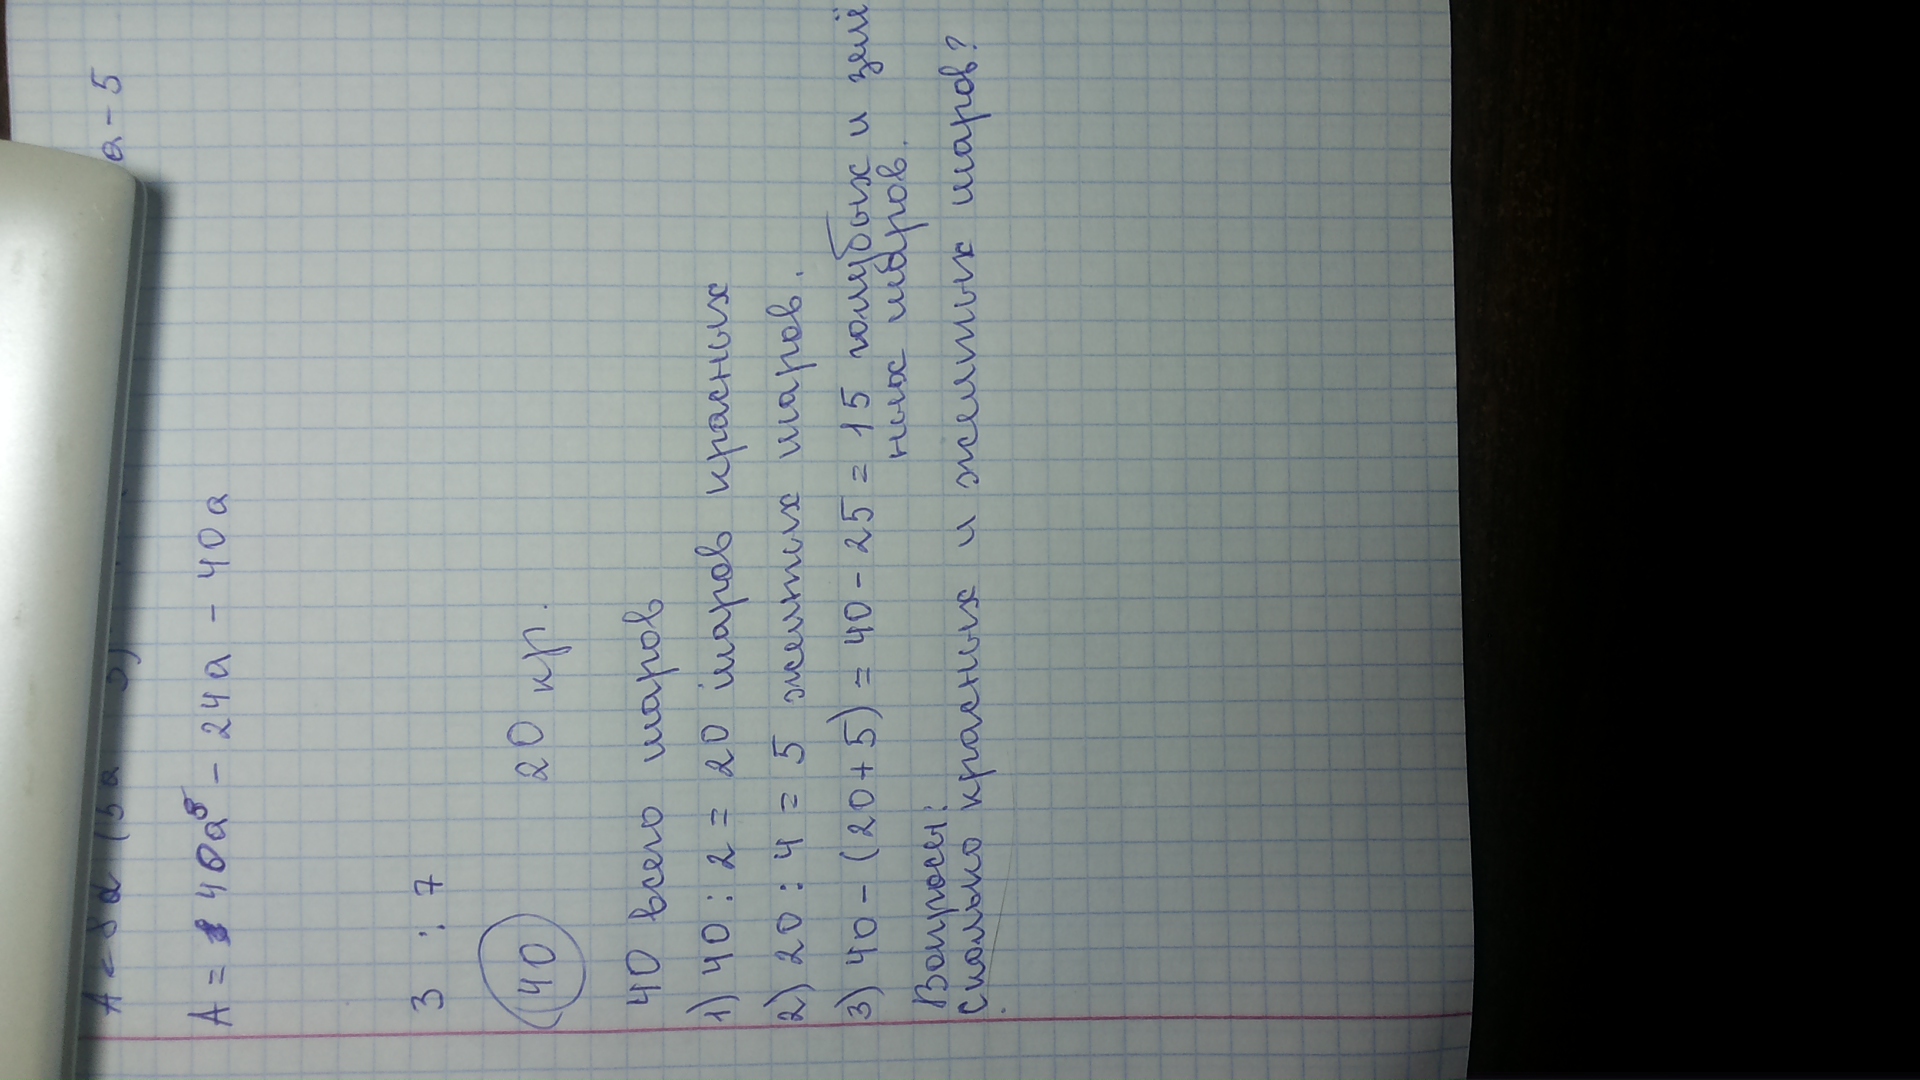 а - 5
A = 8a (5a
A = 40a⁵ - 24a - 40a
3 : 7
40 20 кр.
40 всего шаров
1) 40 : 2 = 20 шаров красных
2) 20 : 4 = 5 желтых шаров.
3) 40 - (20 + 5) = 40 - 25 = 15 голубых и зелё
ных шаров.
Вопросы:
Сколько красных и желтых шаров?